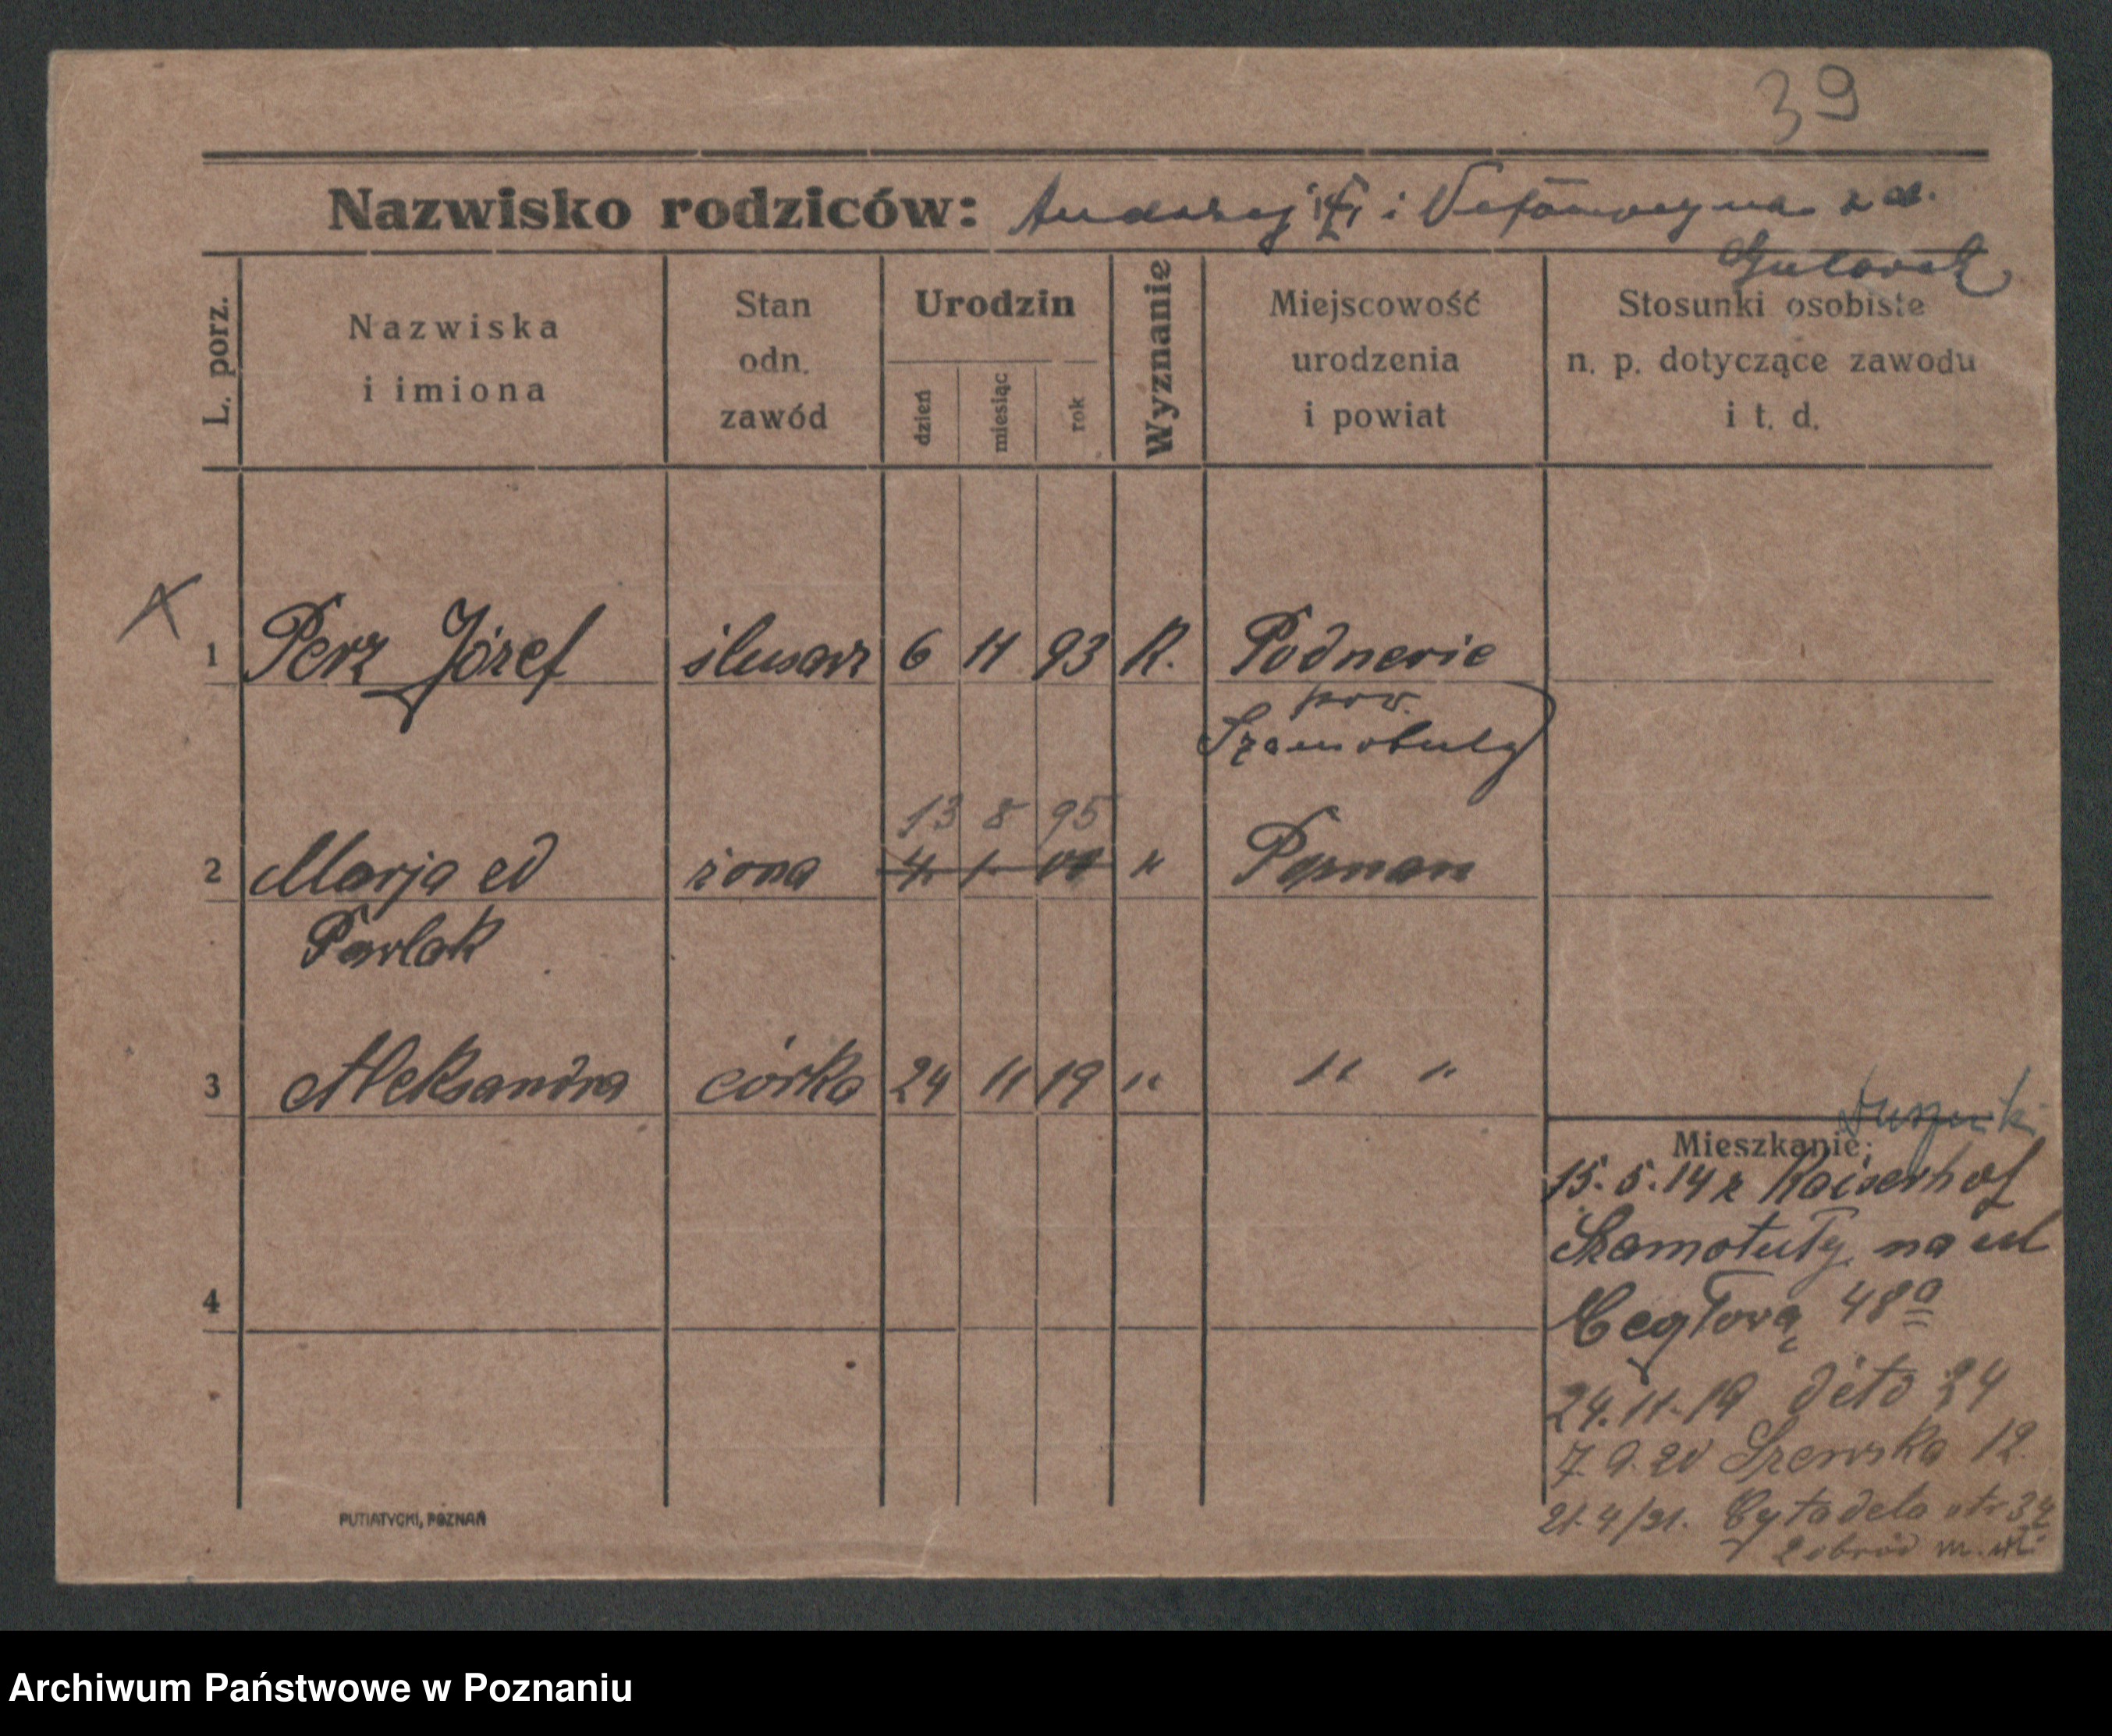 39
Nazwisko rodziców: Andrzej i z d.
L. porz.
Nazwiska
i imiona
Stan
odn.
zawód
Urodzin
dzień
miesiąc
rok
Wyznanie
Miejscowość
urodzenia
i powiat
Stosunki osobiste
n. p. dotyczące zawodu
i t. d.
1 Perz Józef ślusarz 6 11 93 R. Podnerie
pow.
Szamotuły
13 8 95
2 Marja ed żona 4 1 00 " Poznan
Pawlak
3 Aleksandra córka 24 11 19 " " "
Duszniki
Mieszkanie:
15.5.14 z Kaiserhof
Szamotuły na ul
Cegłową 48a
4
24.11.19 dito 24
7.9.20 Szewska 12.
21.4/21. Cytadela
PUTIATYCKI, POZNAŃ
Archiwum Państwowe w Poznaniu